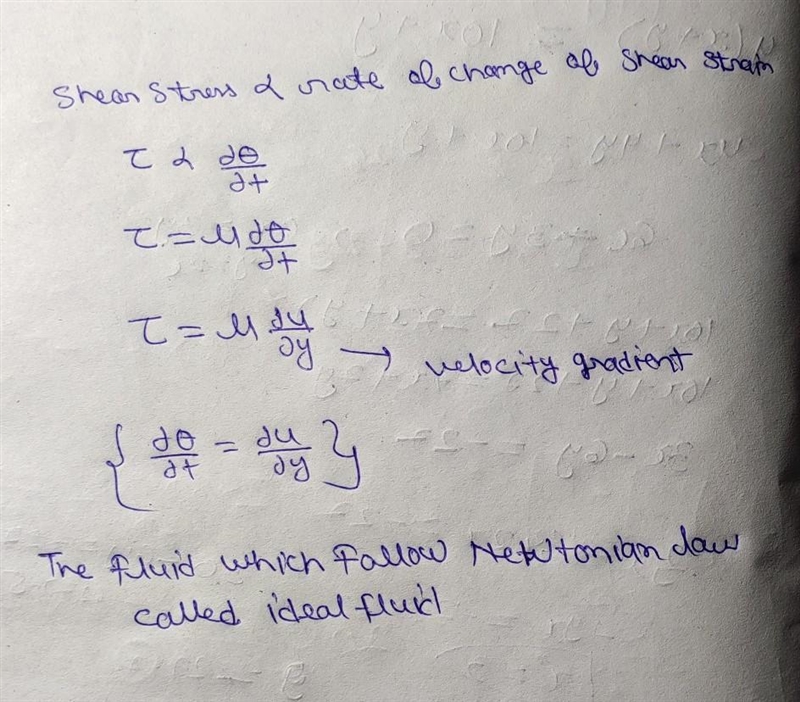 Shear Stress α rate of change of Shear Strain
τ α ∂θ/∂t
τ = μ ∂θ/∂t
τ = μ ∂u/∂y → velocity gradient
{ ∂θ/∂t = ∂u/∂y }
The fluid which Follow Newtonian law
called ideal fluid